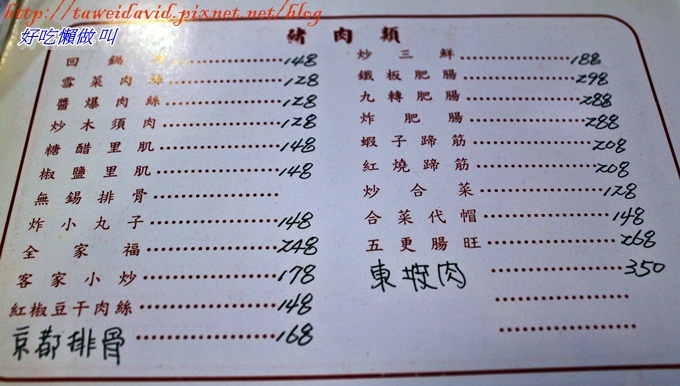 http://taweidavid.pixnet.net/blog
好吃懶做 叫
豬肉類
回鍋肉 148
雪菜肉絲 128
醬爆肉絲 128
炒木須肉 128
糖醋里肌 148
椒鹽里肌 148
無錫排骨
炸小丸子 148
全家福 248
客家小炒 178
紅椒豆干肉絲 148
京都排骨 168
炒三鮮 188
鐵板肥腸 298
九轉肥腸 288
炸肥腸 288
蝦子蹄筋 208
紅燒蹄筋 208
炒合菜 128
合菜代帽 148
五更腸旺 268
東坡肉 350